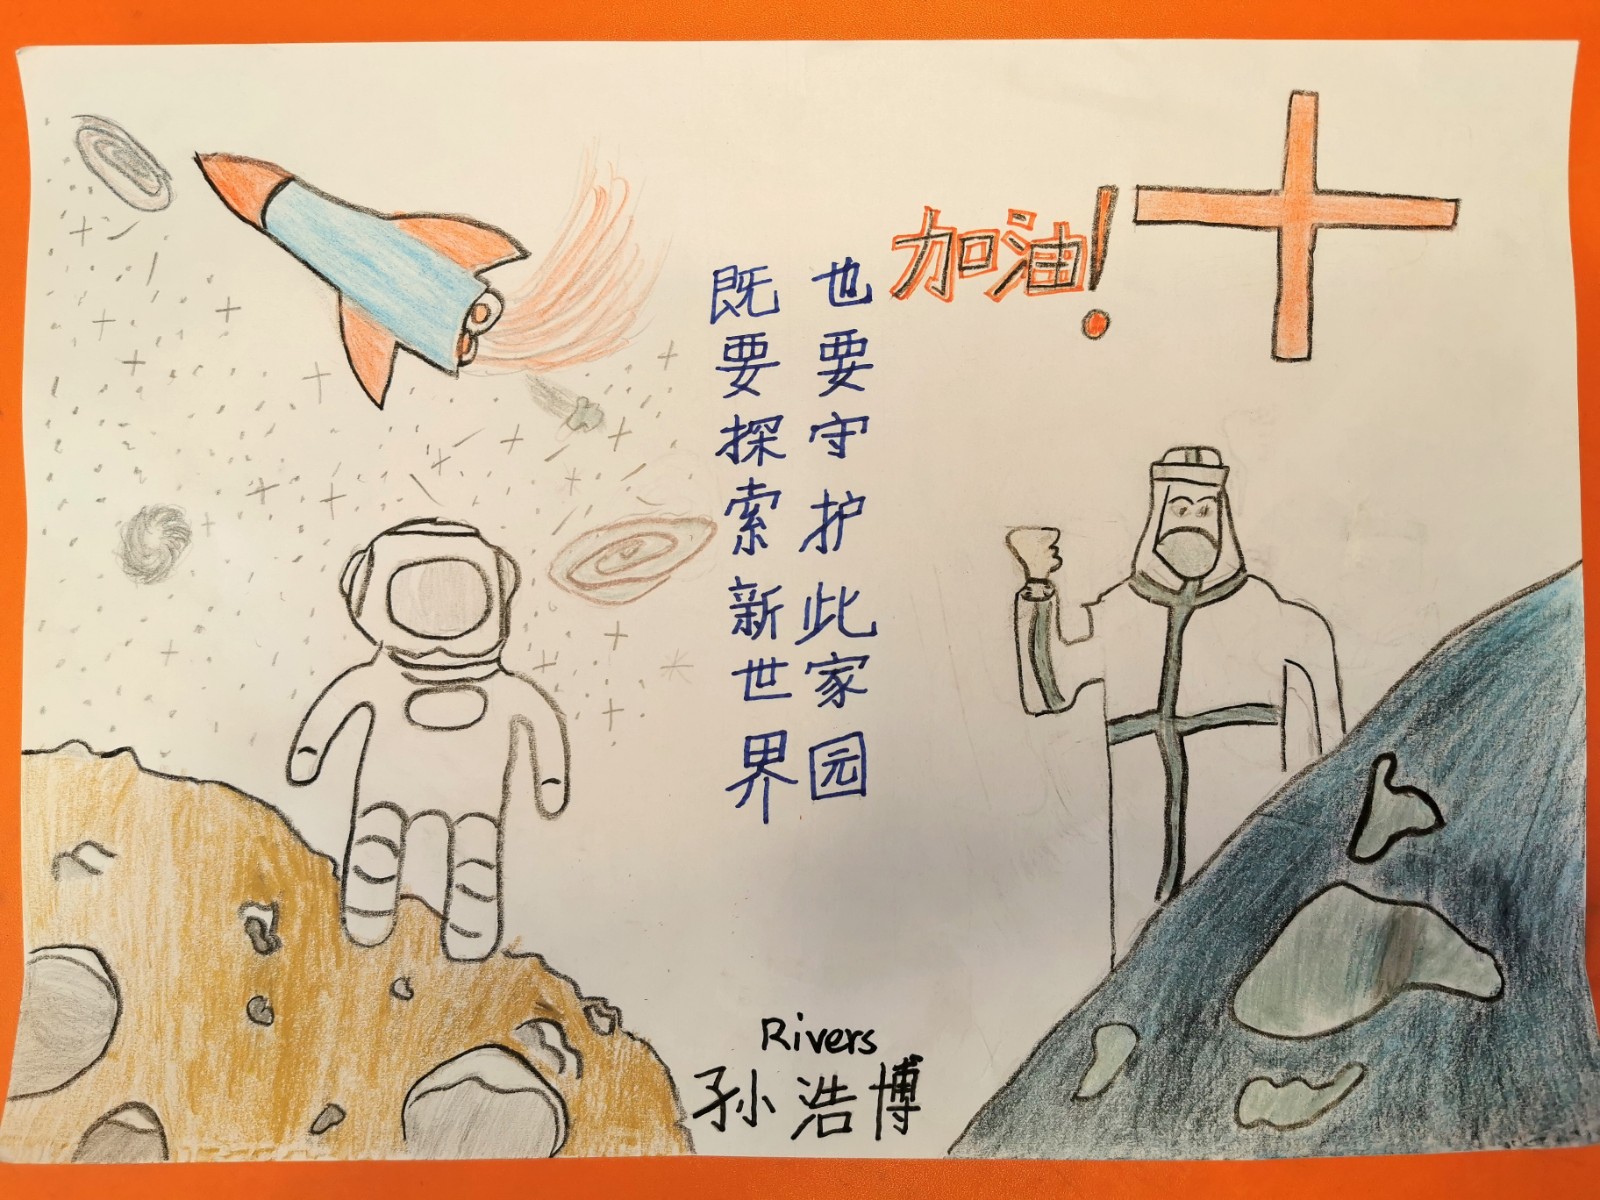 既要探索新世界
也要守护此家园
加油!
Rivers
孙浩博